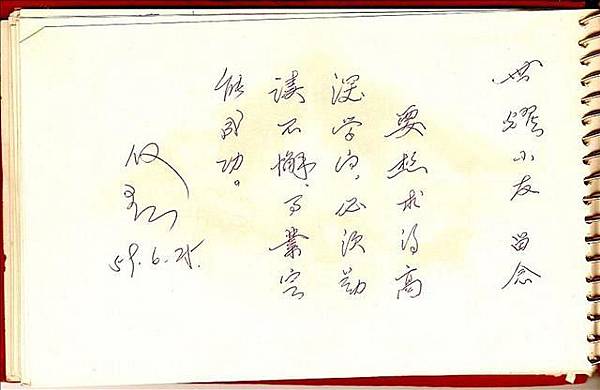 世耀小友 留念
要想求得高
深学问，必须勤
读不懈，可業定
能成功。
59.6.25.